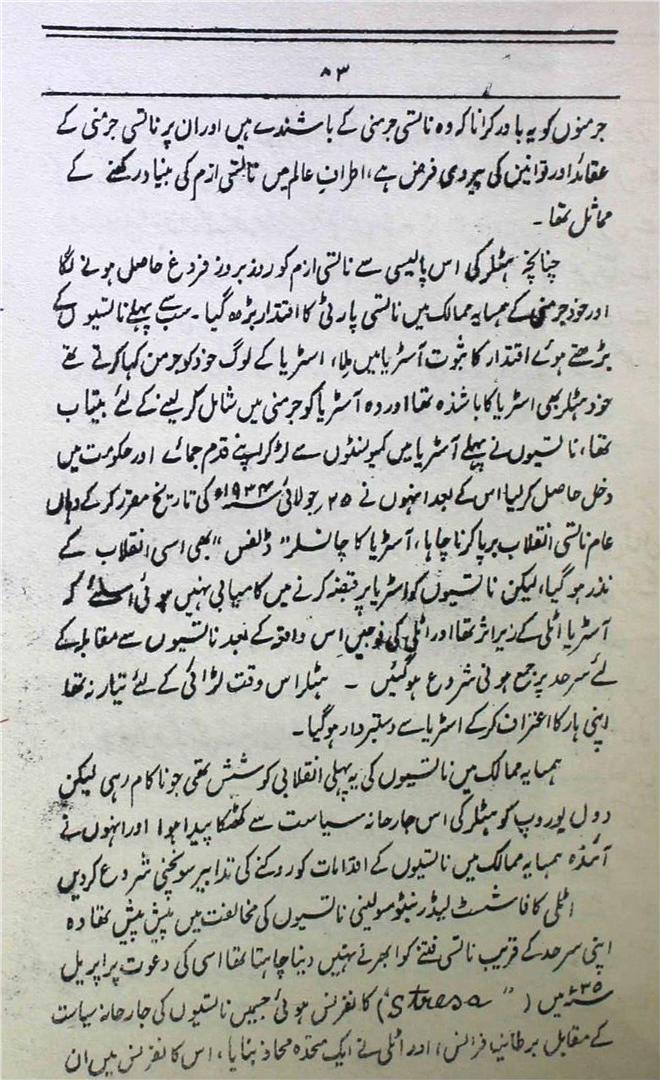 ۸۳
جرمنوں کو یہ باور کرانا کہ وہ ناتسی جرمنی کے باشندے ہیں اور ان پر ناتسی جرمنی کے
عقائد اور قوانین کی پیروی فرض ہے، اطراف عالم میں ناتسی ازم کی بنیاد رکھنے کے
مماثل تھا۔
چنانچہ ہٹلر کی اس پالیسی سے ناتسی ازم کو روز بروز فروغ حاصل ہونے لگا
اور خود جرمنی کے ہمسایہ ممالک میں ناتسی پارٹی کا اقتدار بڑھ گیا۔ سب سے پہلے ناتسیوں کے
بڑھتے ہوئے اقتدار کا ثبوت آسٹریا میں ملا، اسٹریا کے لوگ خود کو جرمن کہا کرتے تھے
خود ہٹلر بھی اسٹریا کا باشندہ تھا اور وہ آسٹریا کو جرمنی میں شامل کر لینے کے لئے بیتاب
تھا، ناتسیوں نے پہلے آسٹریا میں کمیونسٹوں سے لڑ کر اپنے قدم جمائے اور حکومت میں
دخل حاصل کر لیا اس کے بعد انہوں نے ۲۵ جولائی ۱۹۳۴ء کی تاریخ مقرر کر کے وہاں
عام ناتسی انقلاب برپا کرنا چاہا، آسٹریا کا چانسلر "ڈلفس" بھی اسی انقلاب کے
نذر ہو گیا، لیکن ناتسیوں کو اسٹریا پر قبضہ کرنے میں کامیابی نہیں ہوئی اسلئے کہ
آسٹریا اٹلی کے زیر اثر تھا اور اٹلی کی فوجیں اس واقعہ کے بعد ناتسیوں سے مقابلہ کے
لئے سرحد پر جمع ہونی شروع ہو گئیں ۔ ہٹلر اس وقت لڑائی کے لئے تیار نہ تھا
اپنی ہار کا اعتراف کر کے اسٹریا سے دستبردار ہو گیا۔
ہمسایہ ممالک میں ناتسیوں کی یہ پہلی انقلابی کوشش تھی جو ناکام رہی لیکن
دول یوروپ کو ہٹلر کی اس جارحانہ سیاست سے کھٹکا پیدا ہوا اور انہوں نے
آئندہ ہمسایہ ممالک میں ناتسیوں کے اقدامات کو روکنے کی تدابیر سونچنی شروع کر دیں
اٹلی کا فاشسٹ لیڈر نیٹو مولینی ناتسیوں کی مخالفت میں پیش پیش تھا وہ
اپنی سرحد کے قریب ناتسی فتنے کو ابھرنے نہیں دینا چاہتا تھا اسی کی دعوت پر اپریل
۳۵ء میں ("Stresa") کانفرنس ہوئی جسمیں ناتسیوں کی جارحانہ سیاست
کے مقابل برطانیہ فرانس، اور اٹلی نے ایک متحدہ محاذ بنایا، اس کانفرنس میں ان